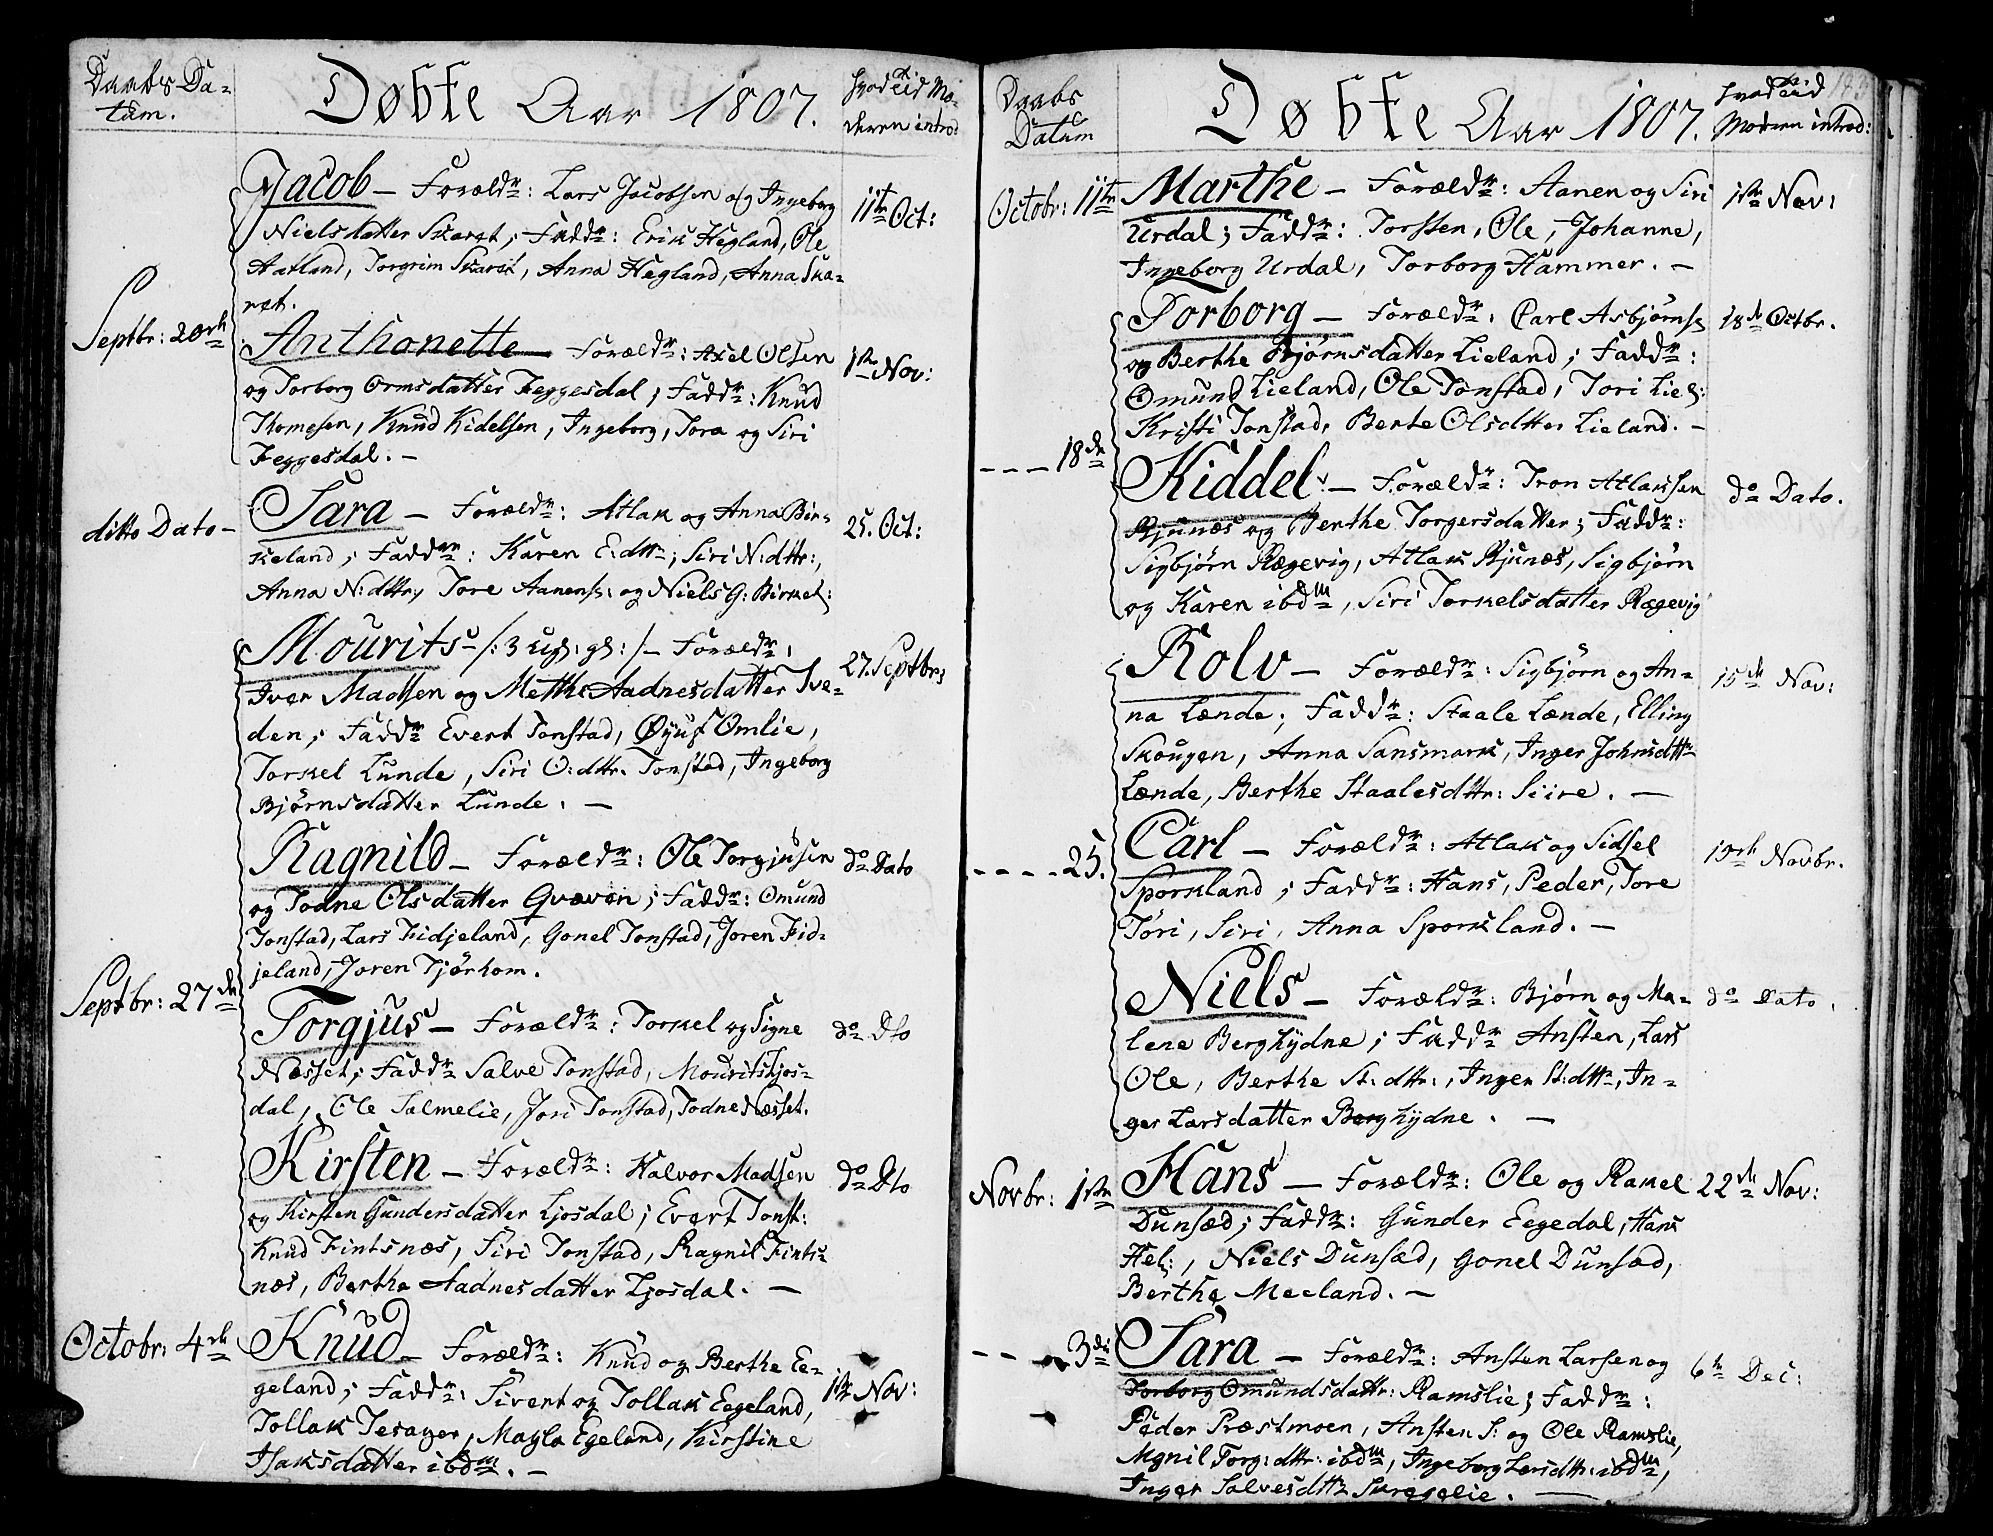 Daabs Da-
tum.
Døbte Aar 1807.
Hvad Tid Mo-
deren introd
Jacob - Forældr: Lars Jacobsen og Ingeborg
Nielsdatter Skaret; Faddr: Erik Hegland, Ole
Aatland, Torgrim Skaret, Anna Hegland, Anna Ska-
ret.
11te Oct:
Septbr: 20de
Anthonette - Forældr: Axel Olsen
og Torborg Ormsdatter Feggesdal; Faddr: Knud
Thomesen, Knud Kidelsen, Ingeborg, Tora og Siri
Feggesdal. -
1ste Nov:
ditto Dato -
Sara - Forældr: Atlak og Anna Bir-
keland; Faddr: Karen E:dttr; Siri N:dttr:,
Anna N:dttr, Tore Aanens: og Niels G: Birkel:
25. Oct:
Mourits - /: 3 Ug: gl: /- Forældr:
Iver Madsen og Mette Aadnesdatter Tve-
den; Faddr Evert Tonstad, Øyuf Omlie,
Torkel Lunde, Siri O:dttr. Tonstad, Ingeborg
Bjørnsdatter Lunde. -
27. Septbr:
Ragnild - Forældr: Ole Torgjusen
og Todne Olsdatter Qvæven; Faddr: Omund
Tonstad, Lars Fidjeland, Gonel Tonstad, Joren Fid-
jeland, Joren Tjørhom.
do Dato
Septbr: 27de
Torgjus - Forældr: Torkel og Signe
Næsset; Faddr Salve Tonstad, Mourits Kjos-
dal, Ole Salmelie, Jori Tonstad, Todne Næsset.
do Dto
Kirsten - Forældr: Halvor Madsen
og Kirsten Gundersdatter Ljosdal; Evert Tonst:
Knud Fintsnæs, Siri Tonstad, Ragnil Fints-
næs, Berthe Aadnesdatter Ljosdal. -
do Dto
Octobr: 4de
Knud - Forældr: Knud og Berthe Ee-
geland; Faddr: Sivert og Tollak Eegeland,
Tollak Tesager, Magla Egeland, Kirstine
Isaksdatter ibdm. -
1ste Nov:
Daabs
Datum
Døbte Aar 1807.
Hvad Tid
Modern introd:
Octobr: 11te
Marthe - Forældr: Aanen og Siri
Urdal; Faddr: Torsten, Ole, Johanne,
Ingeborg Urdal, Torborg Hammer. -
1ste Nov:
Torborg - Forældr: Carl Asbjørns:
og Berthe Bjørnsdatter Lieland; Faddr:
Omund Lieland, Ole Tonstad, Tori Liel:
Kristi Tonstad, Berte Olsdtter Lieland. -
18de Octbr.
- - - 18de
Kiddel - Forældr: Tron Atlaksen
Rjunæs og Berthe Torgersdatter; Faddr:
Sigbjørn Rægevig, Atlak Rjunæs, Sigbjørn
og Karen ibdm, Siri Torkelsdatter Rægevig
do Dato.
Rolv - Forældr: Sigbjørn og An-
na Lænde; Faddr: Staale Lænde, Elling
Skougen, Anna Sansmark, Inger Johnsdttr
Lænde, Berthe Staalesdttr: Siire. -
15de Nov:
- - - - 25.
Carl - Forældr: Atlak og Sidsel
Sporkland; Faddr: Hans, Peder, Tore
Tori, Siri, Anna Sporkland. -
Novbr.
Niels - Forældr: Bjørn og Ma-
lene Berghydne; Faddr Ansten, Lars
Ole, Berthe St:dttr:, Inger St:dttr, In-
ger Larsdatter Berghydne. -
do Dato.
Novbr: 1ste
Hans - Forældr: Ole og Rakel
Dunsæd; Faddr: Gunder Eegedal, Hans
Hel:, Niels Dunsæd, Gonel Dunsæd,
Berthe Meeland. -
22de Nov:
- - - 3die
Sara - Forældr: Ansten Larsen og
Torborg Omundsdattr: Ramslie; Faddr:
Peder Præstmoen, Ansten S: og Ole Ramslie,
Agnil Torg:dttr: ibdm, Ingeborg Larsdttr: ibdm,
Inger Salvesdttr Skregelie. -
6te Dec: